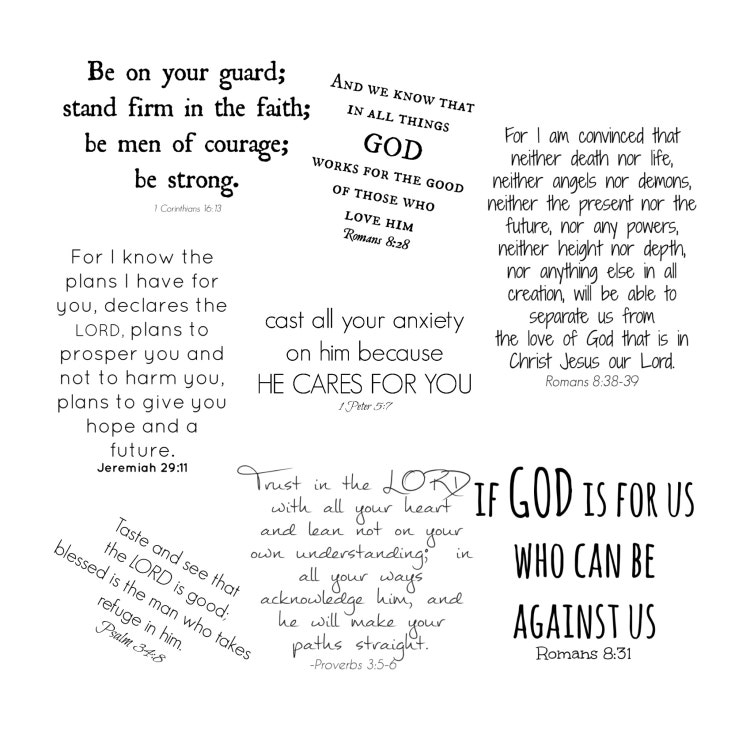 Be on your guard;
stand firm in the faith;
be men of courage;
be strong.
1 Corinthians 16:13
And we know that
in all things
GOD
works for the good
of those who
love him
Romans 8:28
For I am convinced that
neither death nor life,
neither angels nor demons,
neither the present nor the
future, nor any powers,
neither height nor depth,
nor anything else in all
creation, will be able to
separate us from
the love of God that is in
Christ Jesus our Lord.
Romans 8:38-39
For I know the
plans I have for
you, declares the
LORD, plans to
prosper you and
not to harm you,
plans to give you
hope and a
future.
Jeremiah 29:11
cast all your anxiety
on him because
HE CARES FOR YOU
1 Peter 5:7
Taste and see that
the LORD is good;
blessed is the man who takes
refuge in him.
Psalm 34:8
Trust in the LORD
with all your heart
and lean not on your
own understanding; in
all your ways
acknowledge him, and
he will make your
paths straight.
-Proverbs 3:5-6
IF GOD IS FOR US
WHO CAN BE
AGAINST US
Romans 8:31